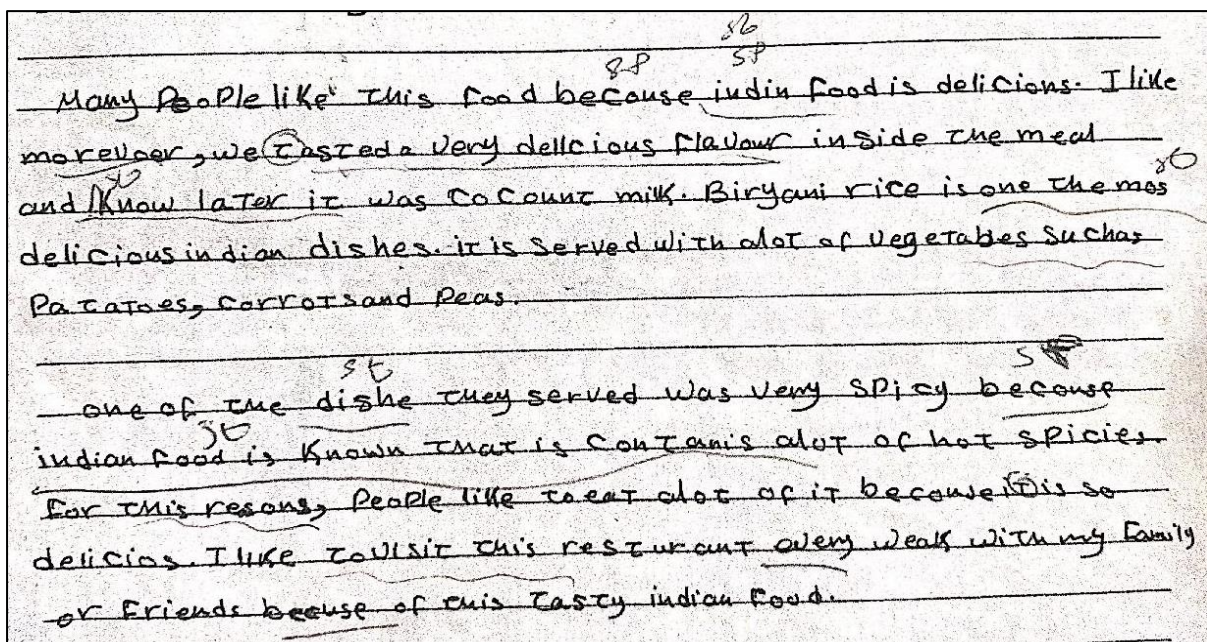 st
sp sp
Many People like this food because indin food is delicions. I like
morevoer, we tasted a very delicious flavour inside the meal
st st
and Know later it was cocount milk. Biryani rice is one the mos
delicious indian dishes. it is served with alot of vegetables such as
Patatoes, corrots and Peas.
st s
one of the dishe they served was very spicy becouse
st
indian food is Known that is contanis alot of hot spicies
For this resons, people like to eat alot of it becouse it is so
delicios. I like to visit this resturant avery weak with my family
or friends becuse of this tasty indian food.